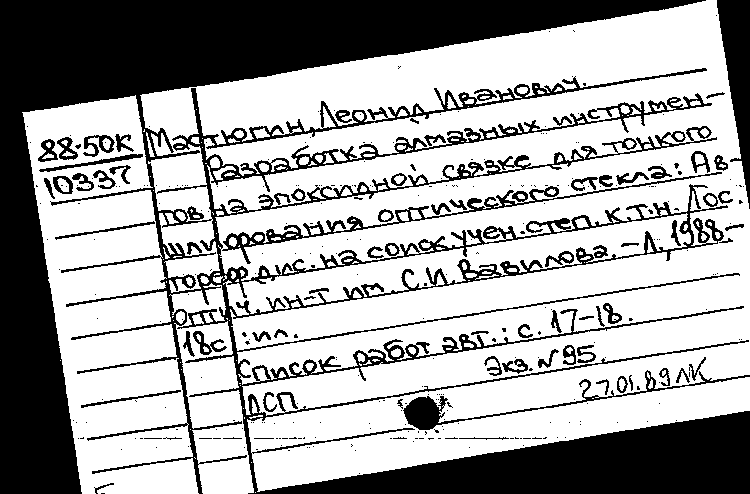 88-50К Мастюгин, Леонид Иванович.
10337 Разработка алмазных инструмен-
тов на эпоксидной связке для тонкого
шлифования оптического стекла: Ав-
тореф. дис. на соиск. учен. степ. к.т.н. /Гос.
оптич. ин-т им. С.И. Вавилова. -Л., 1988.-
18с : ил.
Список работ авт.: с. 17-18.
ДСП. Экз. N 95.
27.01.89 ЛК